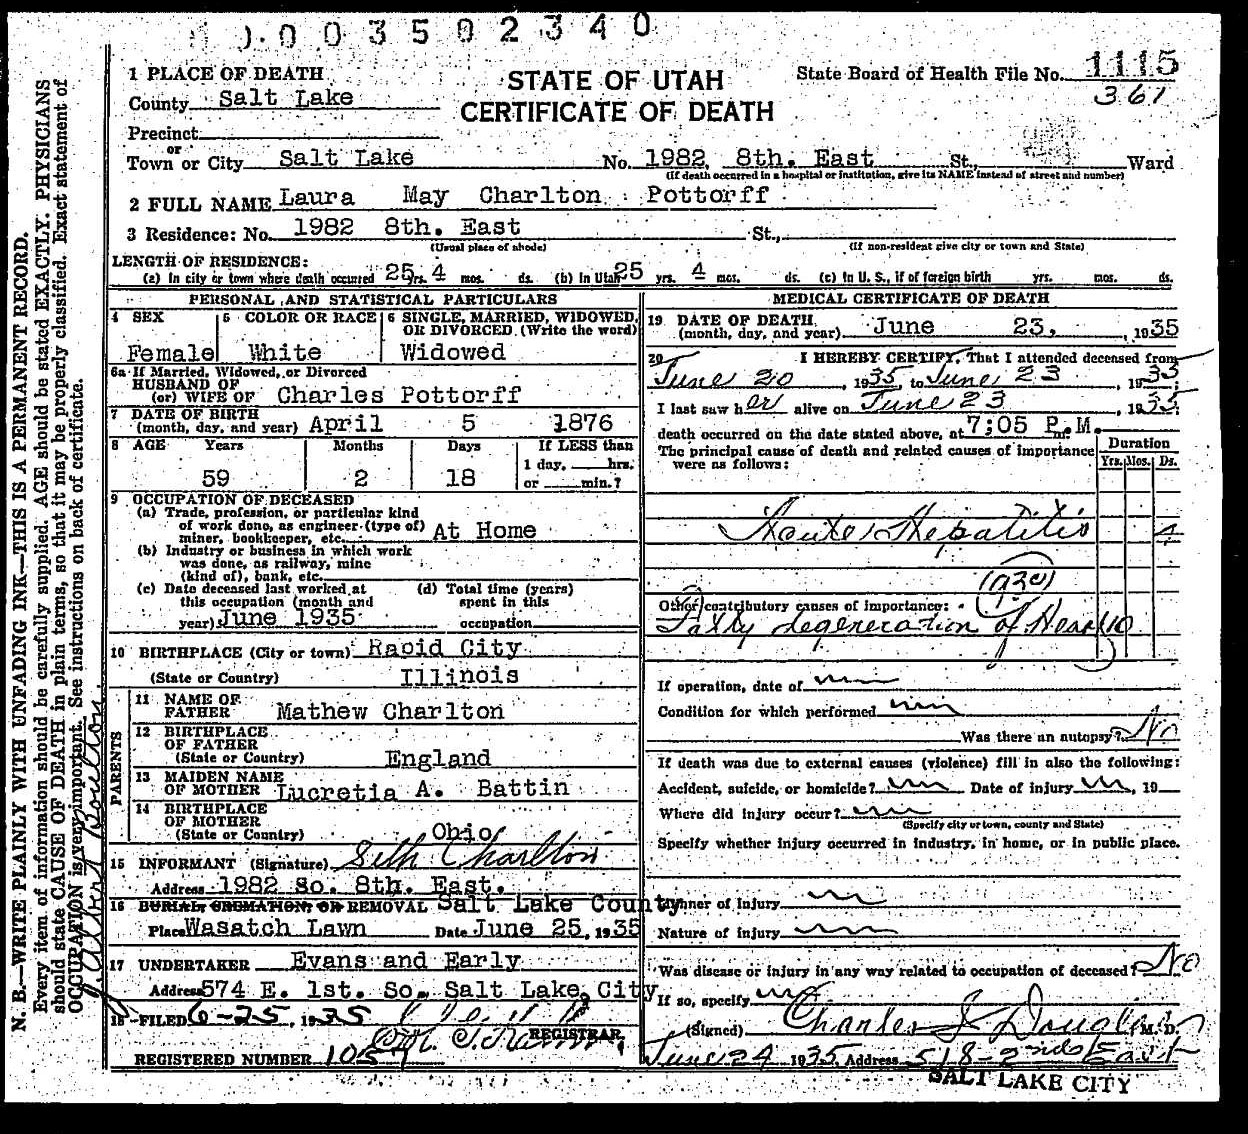 003502340
1 PLACE OF DEATH
STATE OF UTAH
State Board of Health File No. 1115
County Salt Lake
CERTIFICATE OF DEATH
361
Precinct
or
Town or City Salt Lake No. 1982 8th. East St., Ward
(If death occurred in a hospital or institution, give its NAME instead of street and number)
2 FULL NAME Laura May Charlton Pottorff
3 Residence: No. 1982 8th. East St.,
(Usual place of abode) (If non-resident give city or town and State)
LENGTH OF RESIDENCE:
(a) In city or town where death occurred 25 yrs. 4 mos. ds. (b) In Utah 25 yrs. 4 mos. ds. (c) In U. S., if of foreign birth yrs. mos. ds.
PERSONAL AND STATISTICAL PARTICULARS
4 SEX 5 COLOR OR RACE 6 SINGLE, MARRIED, WIDOWED,
OR DIVORCED. (Write the word)
Female White Widowed
6a If Married, Widowed, or Divorced
HUSBAND OF
(or) WIFE OF Charles Pottorff
7 DATE OF BIRTH
(month, day, and year) April 5 1876
8 AGE Years Months Days If LESS than
1 day, hrs.
59 2 18 or min.?
9 OCCUPATION OF DECEASED
(a) Trade, profession, or particular kind
of work done, as engineer (type of)
miner, bookkeeper, etc. At Home
(b) Industry or business in which work
was done, as railway, mine
(kind of), bank, etc.
(c) Date deceased last worked at (d) Total time (years)
this occupation (month and spent in this
year) June 1935 occupation
10 BIRTHPLACE (City or town) Rapid City
(State or Country) Illinois
PARENTS
11 NAME OF
FATHER Mathew Charlton
12 BIRTHPLACE
OF FATHER
(State or Country) England
13 MAIDEN NAME
OF MOTHER Lucretia A. Battin
14 BIRTHPLACE
OF MOTHER
(State or Country) Ohio
15 INFORMANT (Signature) Seth Charlton
Address 1982 So. 8th. East.
16 BURIAL, CREMATION, OR REMOVAL Salt Lake County
Place Wasatch Lawn Date June 25, 1935
17 UNDERTAKER Evans and Early
Address 574 E. 1st. So. Salt Lake City
18 FILED 6-25, 1935
REGISTRAR
REGISTERED NUMBER
MEDICAL CERTIFICATE OF DEATH
19 DATE OF DEATH
(month, day, and year) June 23, 1935
20 I HEREBY CERTIFY, That I attended deceased from
June 20, 1935, to June 23, 1935;
I last saw her alive on June 23, 1935;
death occurred on the date stated above, at 7:05 P.M. m.
The principal cause of death and related causes of importance
were as follows:
Duration
Yrs. Mos. Ds.
Acute Hepatitis 4
Other contributory causes of importance:
Fatty degeneration of Heart 10
If operation, date of
Condition for which performed
Was there an autopsy? No
If death was due to external causes (violence) fill in also the following:
Accident, suicide, or homicide? Date of injury , 19
Where did injury occur?
(Specify city or town, county and State)
Specify whether injury occurred in industry, in home, or in public place.
Manner of injury
Nature of injury
Was disease or injury in any way related to occupation of deceased? No
If so, specify
(Signed) Charles J Douglas M. D.
June 24 1935 Address 518-2nd East
SALT LAKE CITY
N. B.—WRITE PLAINLY WITH UNFADING INK—THIS IS A PERMANENT RECORD.
Every item of information should be carefully supplied. AGE should be stated EXACTLY. PHYSICIANS
should state CAUSE OF DEATH in plain terms, so that it may be properly classified. Exact statement of
OCCUPATION is very important. See instructions on back of certificate.
J. Albert Boulton